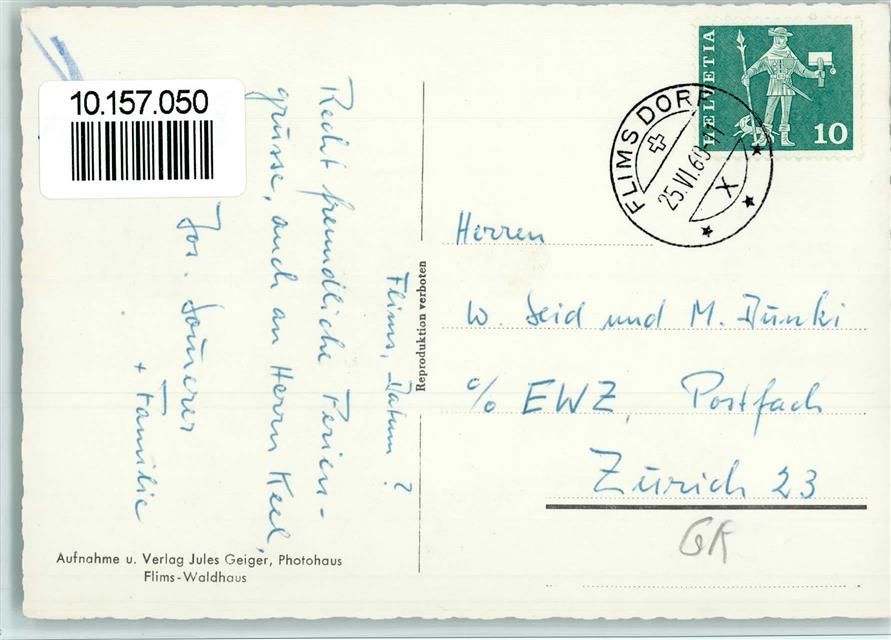 10.157.050
Flims, Datum ?
Recht freundliche Ferien-
grüsse, auch an Herrn Keel,
Jos.
+ Familie
Aufnahme u. Verlag Jules Geiger, Photohaus
Flims-Waldhaus
Reproduktion verboten
HELVETIA
10
FLIMS DORF
25.VI.60
X
Herren
W. Seid und M. Dünki
c/o EWZ, Postfach
Zürich 23
GR